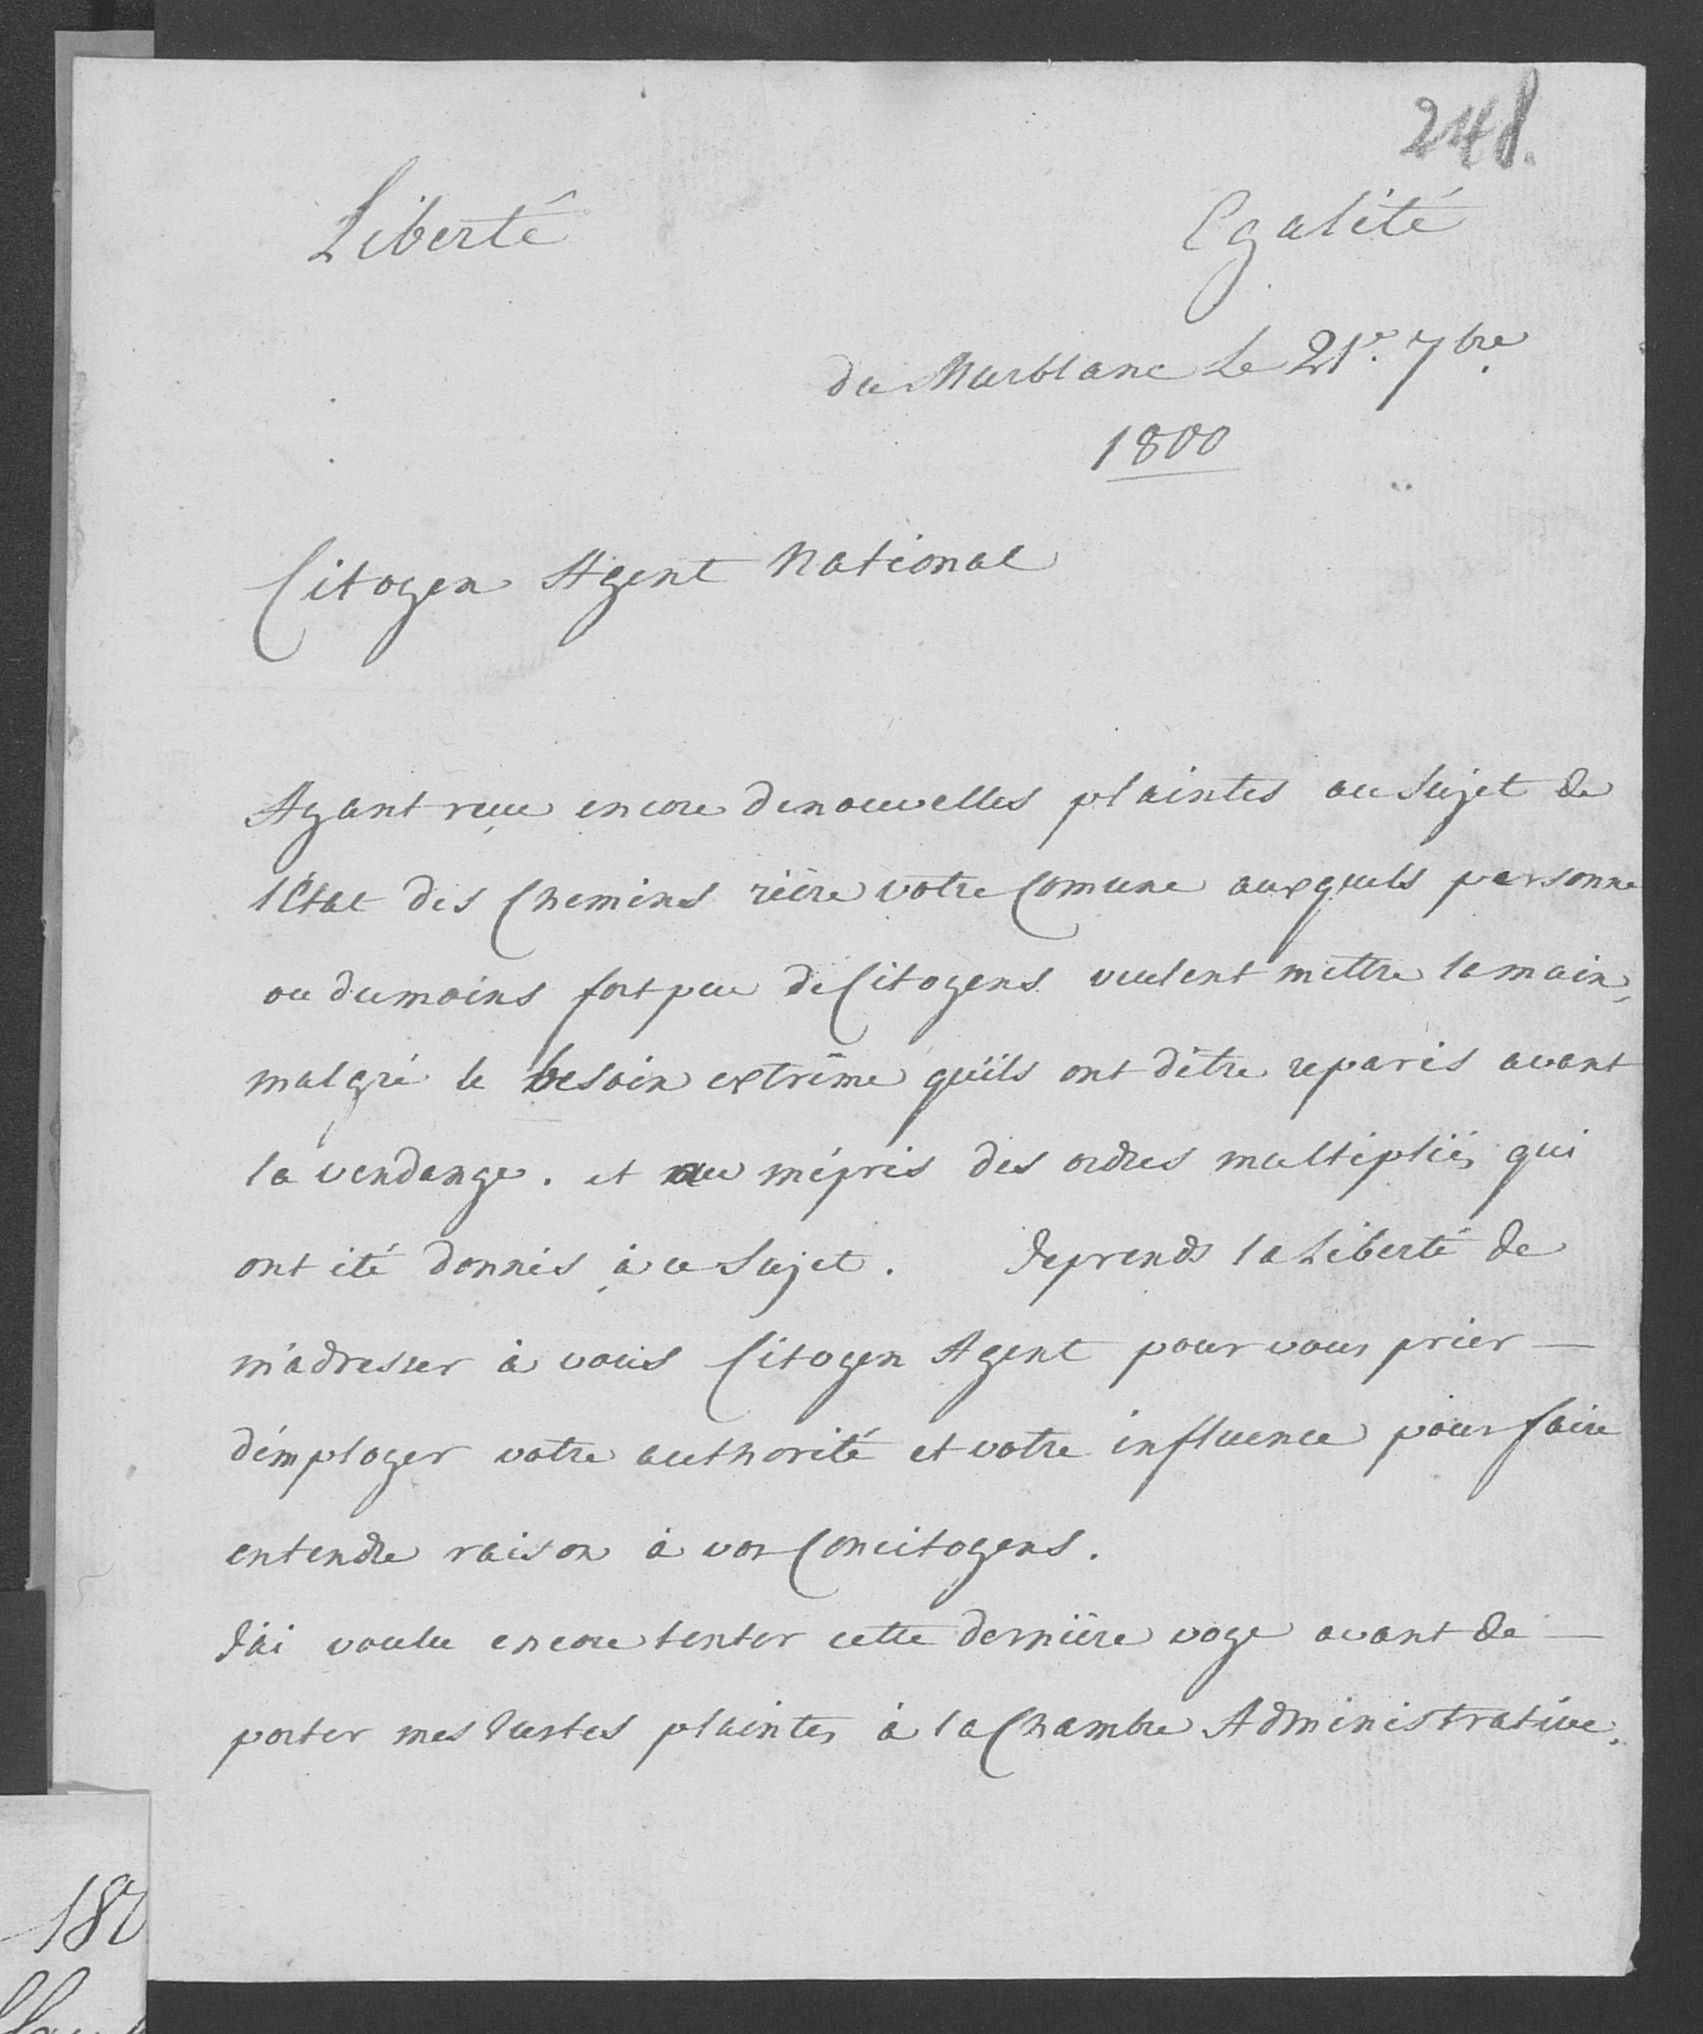 248.
Liberté Egalité
du Murblanc Le 21e. 7bre.
1800
Citoyen Agent National
Ayant reçu encore denouvelles plaintes au Sujet de
l'État des Chemins rière votre Comune auxquels personne
ou dumoins fort peu de Citoyens veulent mettre la main,
malgré le besoin extrême qu'ils ont d'être reparés avant
la vendange. et au mépris des ordres multipliés qui
ont été donnés à ce Sujet. Je prends la Liberté de
m'adresser à vous Citoyen Agent pour vous prier —
d'employer votre authorité et votre influence pour faire
entendre raison à vos Concitoyens.
J'ai voulu encore tenter cette dernière voye avant de —
porter mes Justes plaintes à la Chambre Administrative.
180